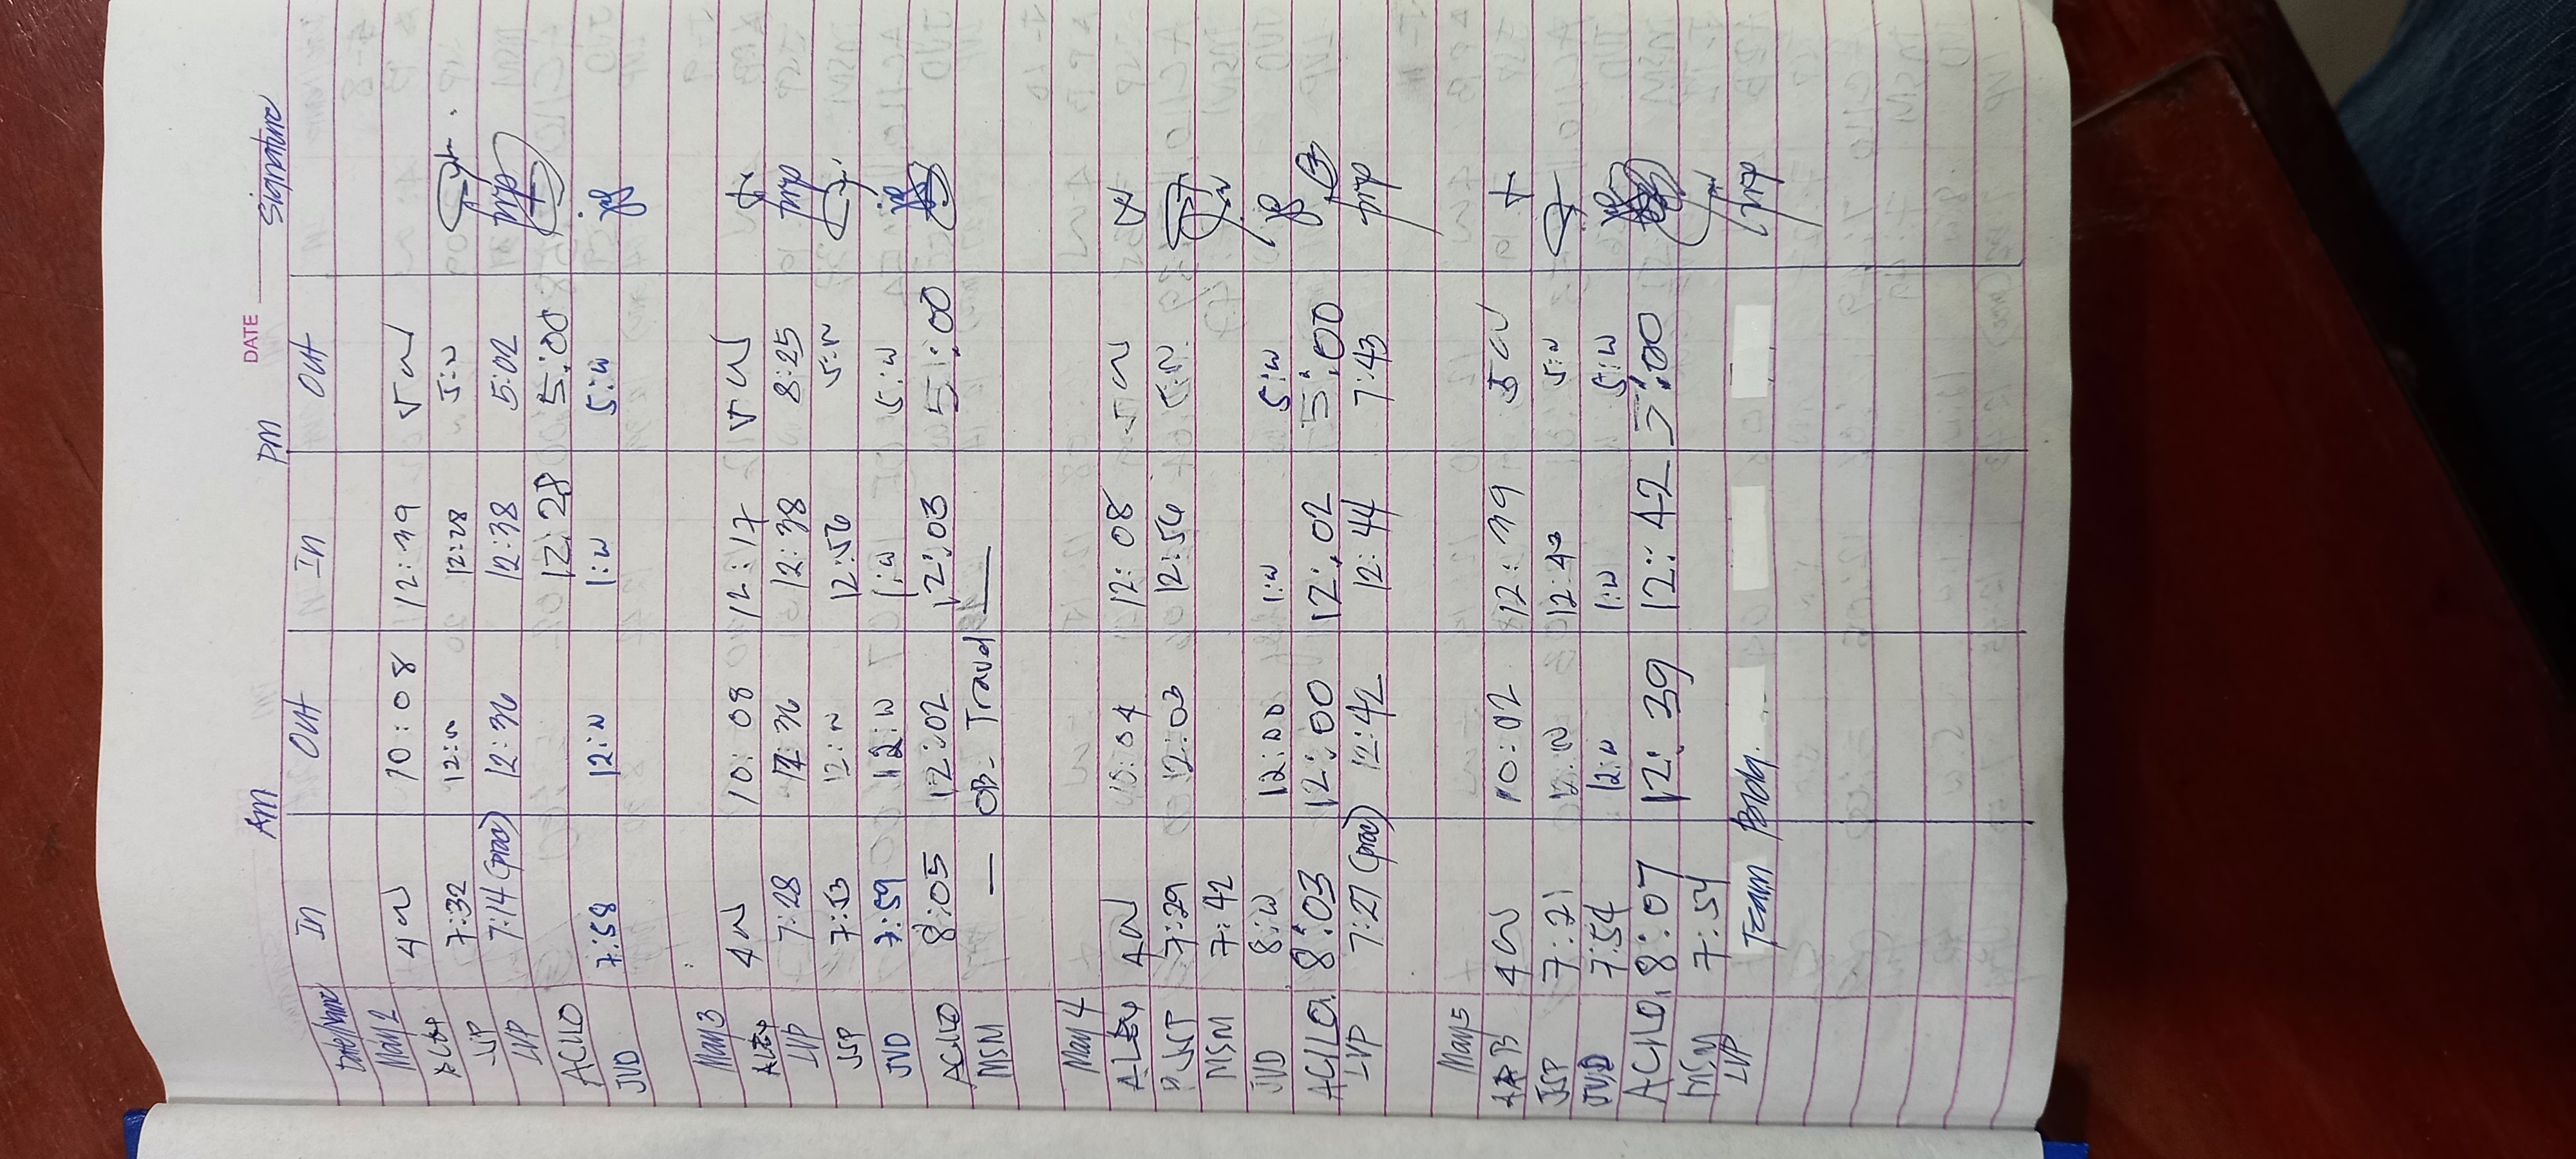 DATE
AM PM Signature
Date/Name In Out In Out
May 2
4 w 10:08 12:39 5 w
7:32 12:N 12:28 5:N
LVP 7:14 (prov) 12:36 12:38 5:02
ACLLO 12:28 5:00
JVD 7:58 12:N 1:w 5:w
May 3
4 w 10:08 12:17 5 w
LVP 7:28 12:36 12:38 8:25
JSP 7:53 12:N 12:56 5:N
JVD 7:59 12:w 1:w 5:w
ACLLO 8:05 12:02 12:03 5:00
MSM — OB- Travel —
May 4
4 w 10:04 12:08 5 w
7:29 12:03 12:56 5:N
MSM 7:42
JVD 8:w 12:00 1:w 5:w
ACLLO 8:03 12:00 12:02 5:00
LVP 7:27 (prov) 12:42 12:44 7:43
May 5
4 w 10:02 12:39 5 w
JSP 7:21 12:N 12:43 5:N
JVD 7:54 12:N 1:w 5:w
ACLLO 8:07 12:39 12:42 5:00
MSM 7:54
LVP Team Bldg.